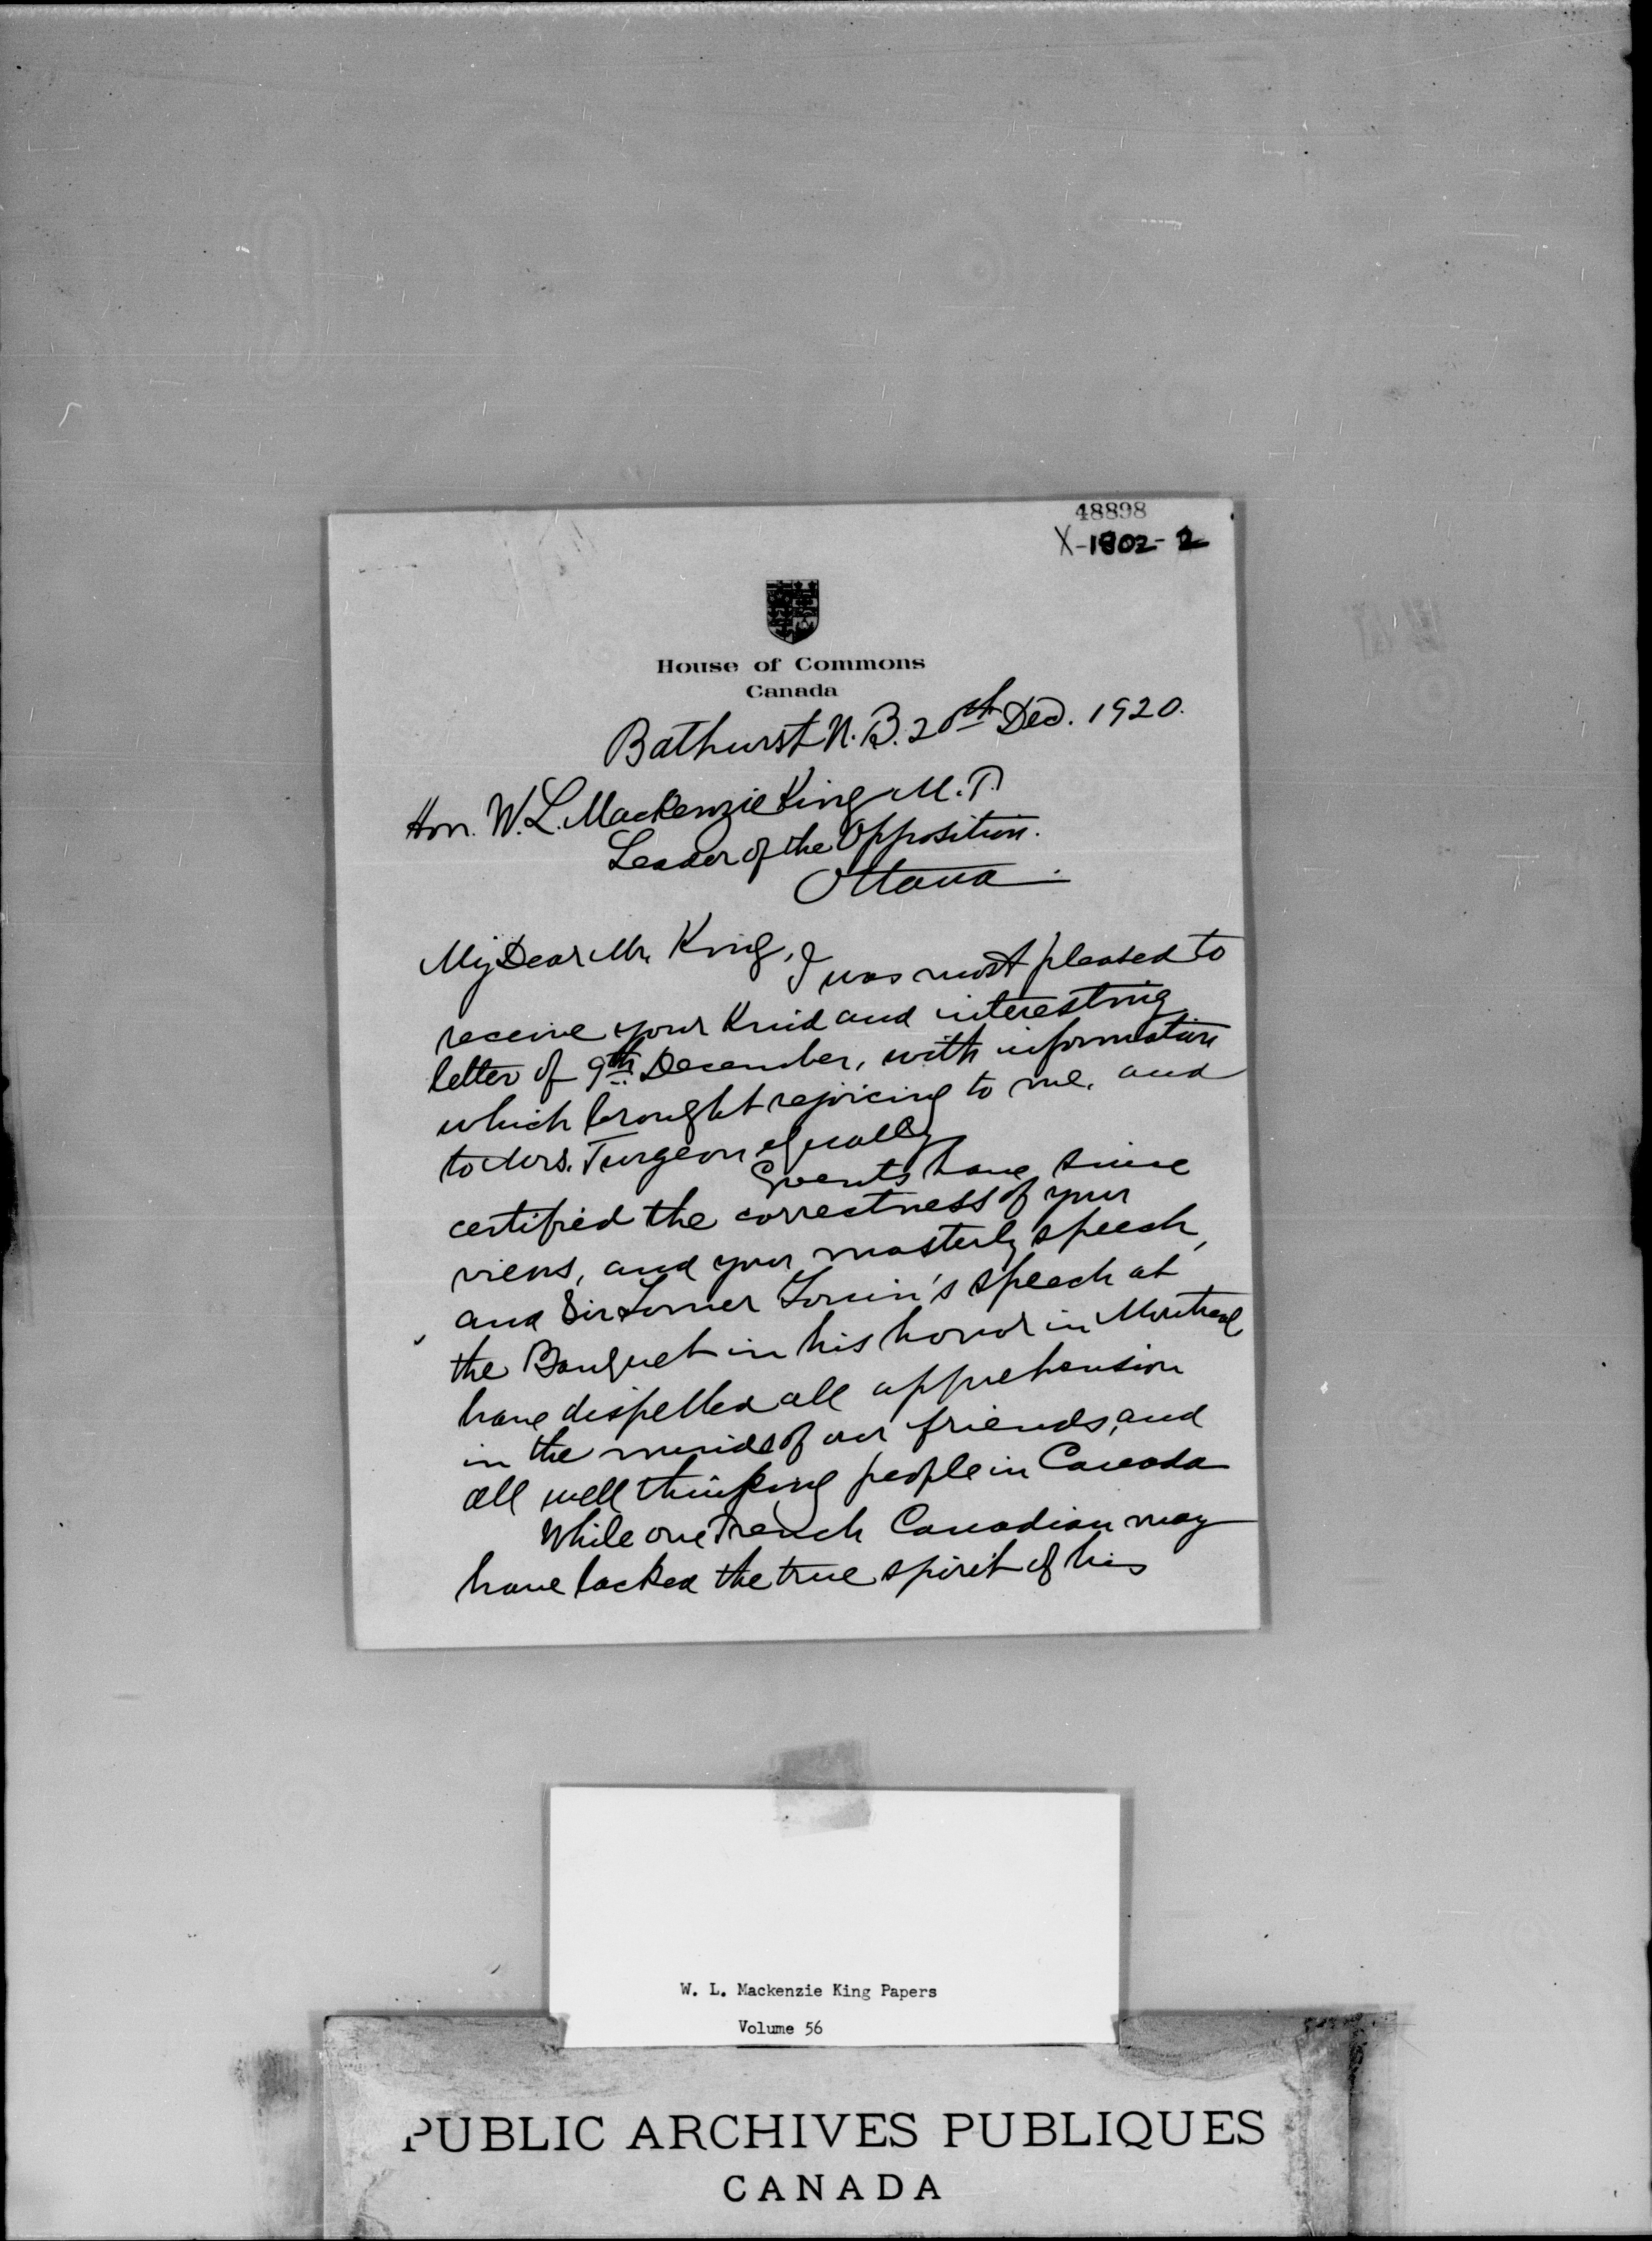 48898
X-1802-2
House of Commons
Canada
Bathurst N.B. 20th Dec. 1920.
Hon. W.L. Mackenzie King M.P.
Leader of the Opposition.
Ottawa.
My Dear Mr. King,
I was most pleased to
receive your kind and interesting
letter of 9th December, with information
which brought rejoicing to me, and
to Mrs. Turgeon equally
Events have since
certified the correctness of your
views, and your masterly speech,
and Sir Lomer Gouin's speech at
the Banquet in his honor in Montreal
have dispelled all apprehension
in the minds of our friends, and
all well thinking people in Canada
While one French Canadian may
have lacked the true spirit of his
W. L. Mackenzie King Papers
Volume 56
PUBLIC ARCHIVES PUBLIQUES
CANADA